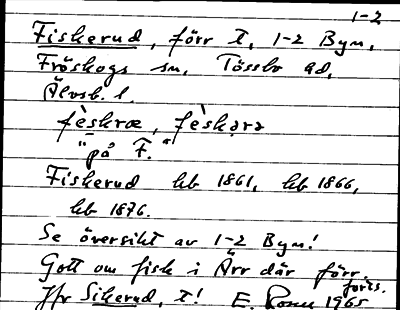 1-2
Fiskerud, förr t, 1-2 Bym,
Fröskogs sn, Tössbo hd,
Älvsb. l.
fèskræ, fèskərə
"på F."
Fiskerud hb 1861, hb 1866,
hb 1876.
Se översikt av 1-2 Bym!
Gott om fisk i Ärr där förr.
forts.
Jfr Sikerud, t! E. 1965